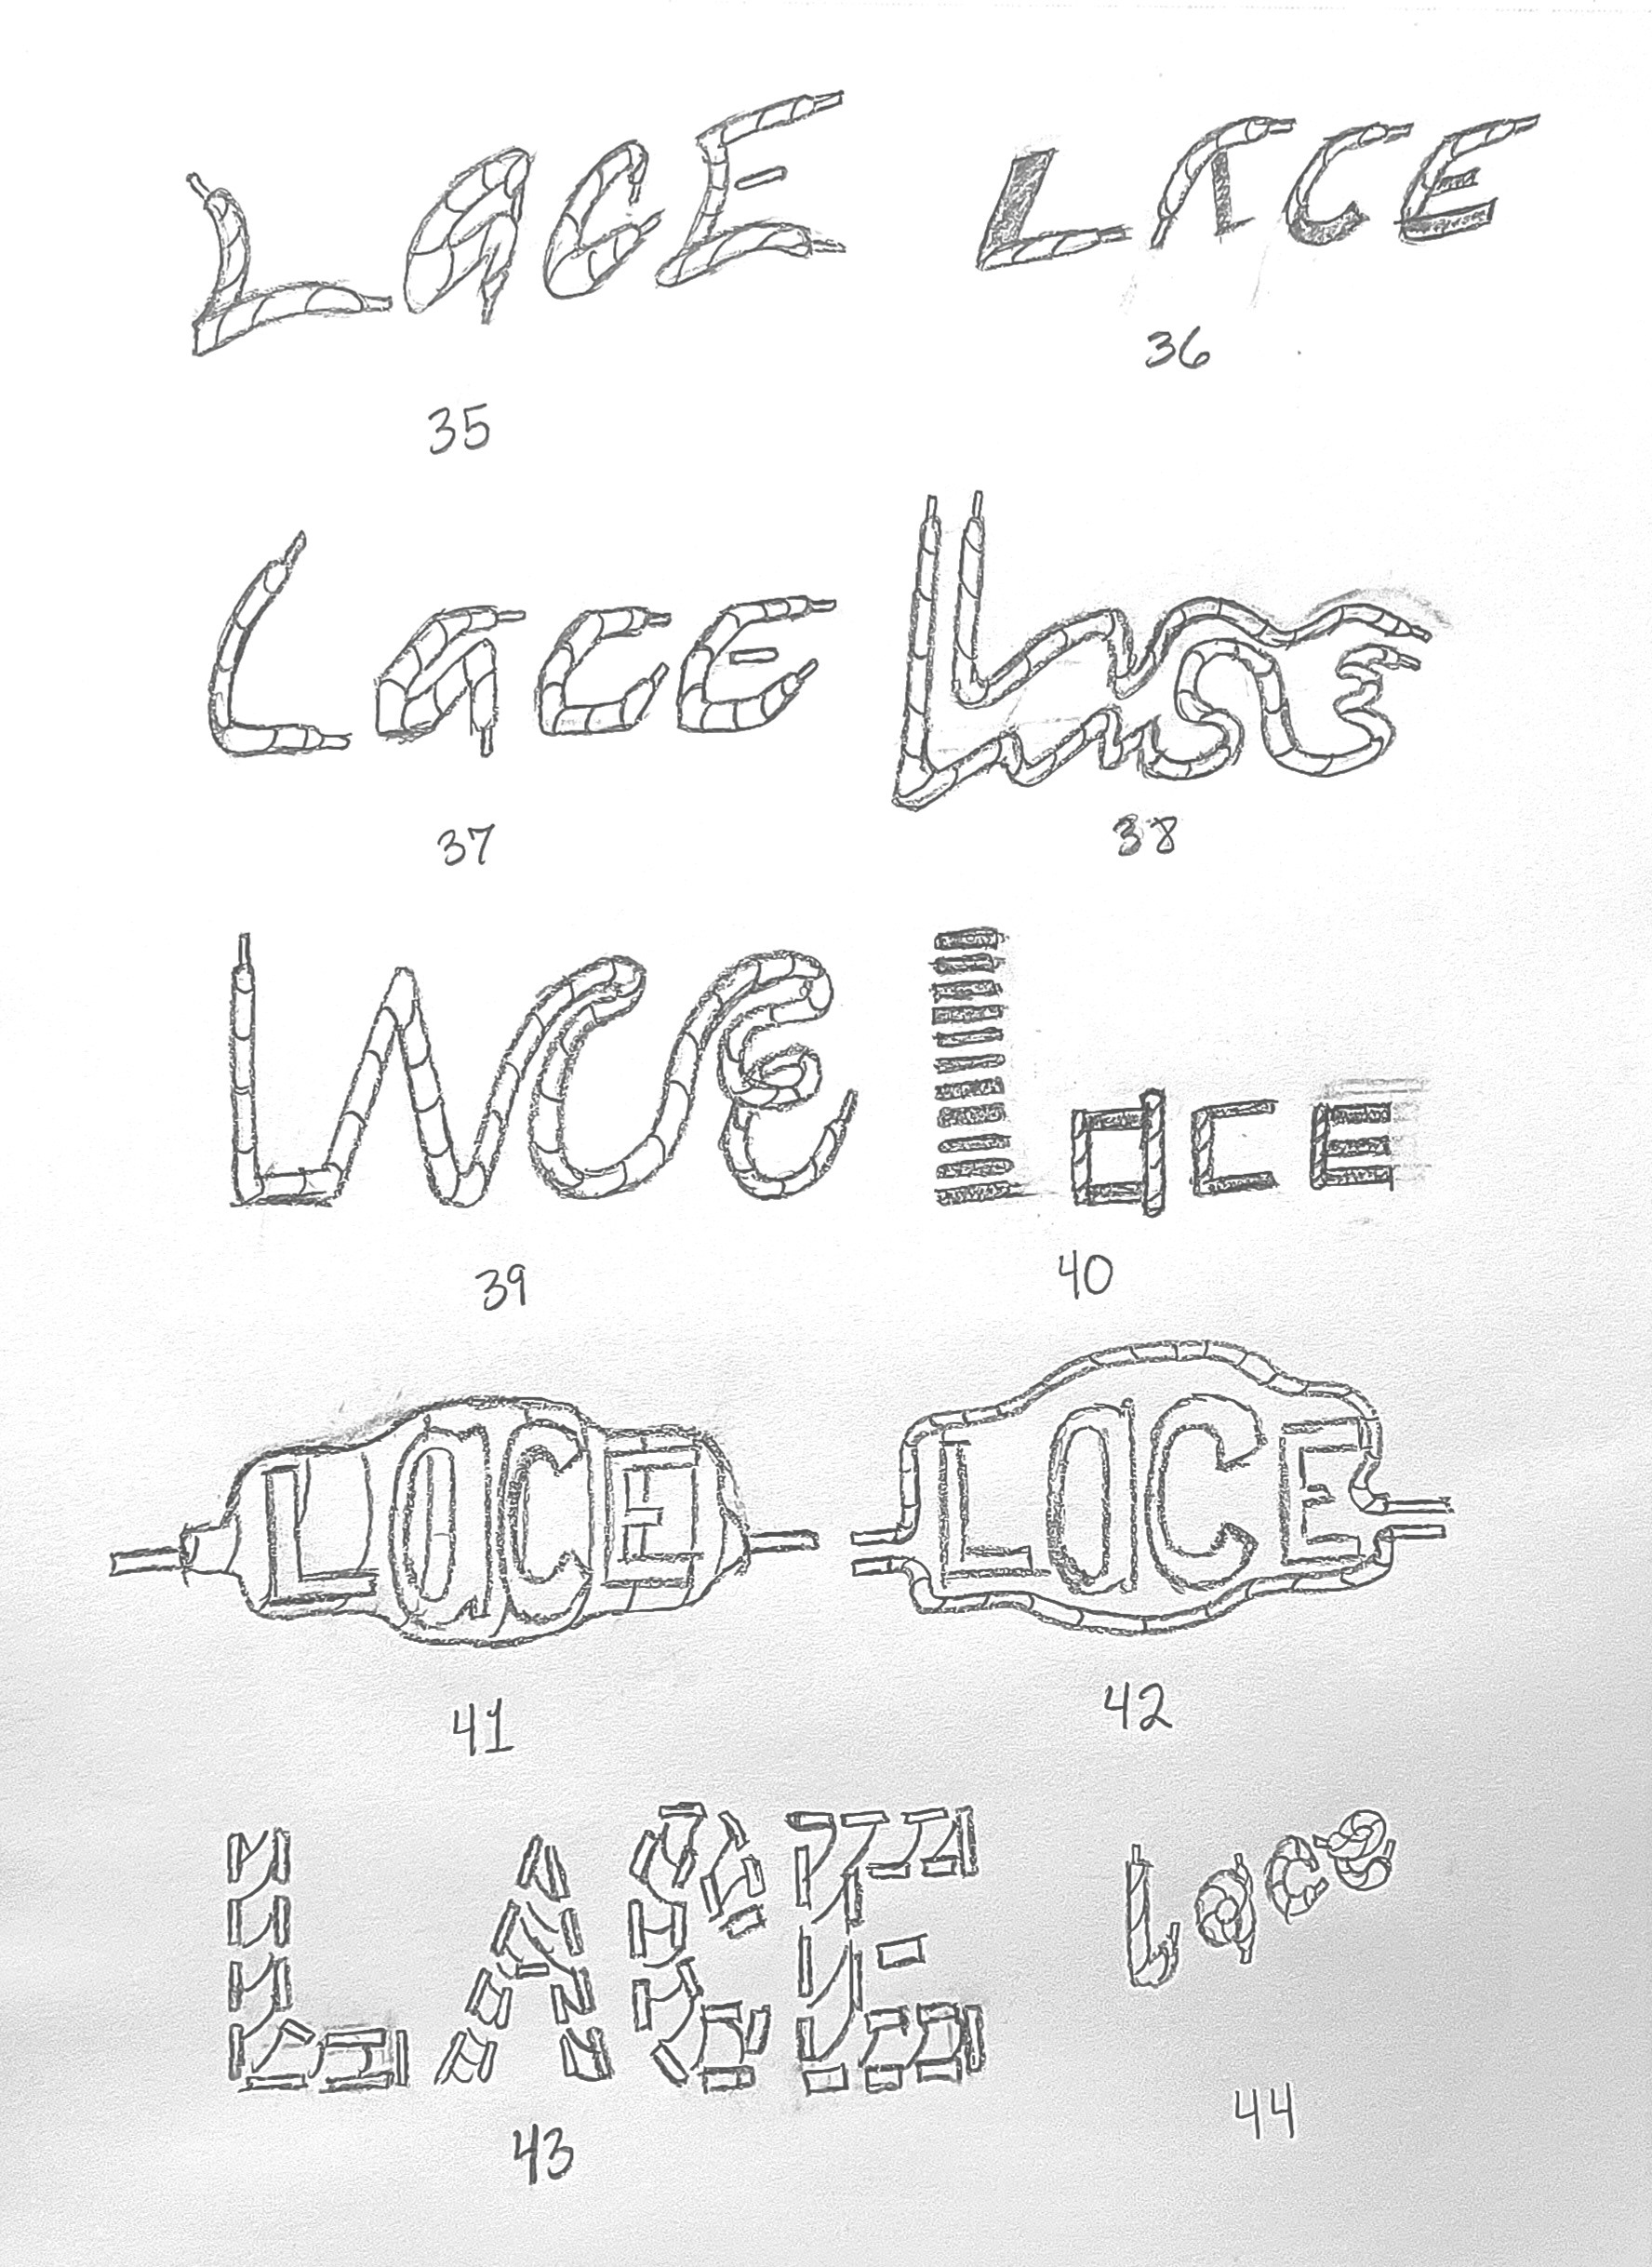 LaCE LACE
36
35
Lace Lace
37 38
LACE Lace
39 40
LaCE LaCE
41 42
LACE lace
43 44